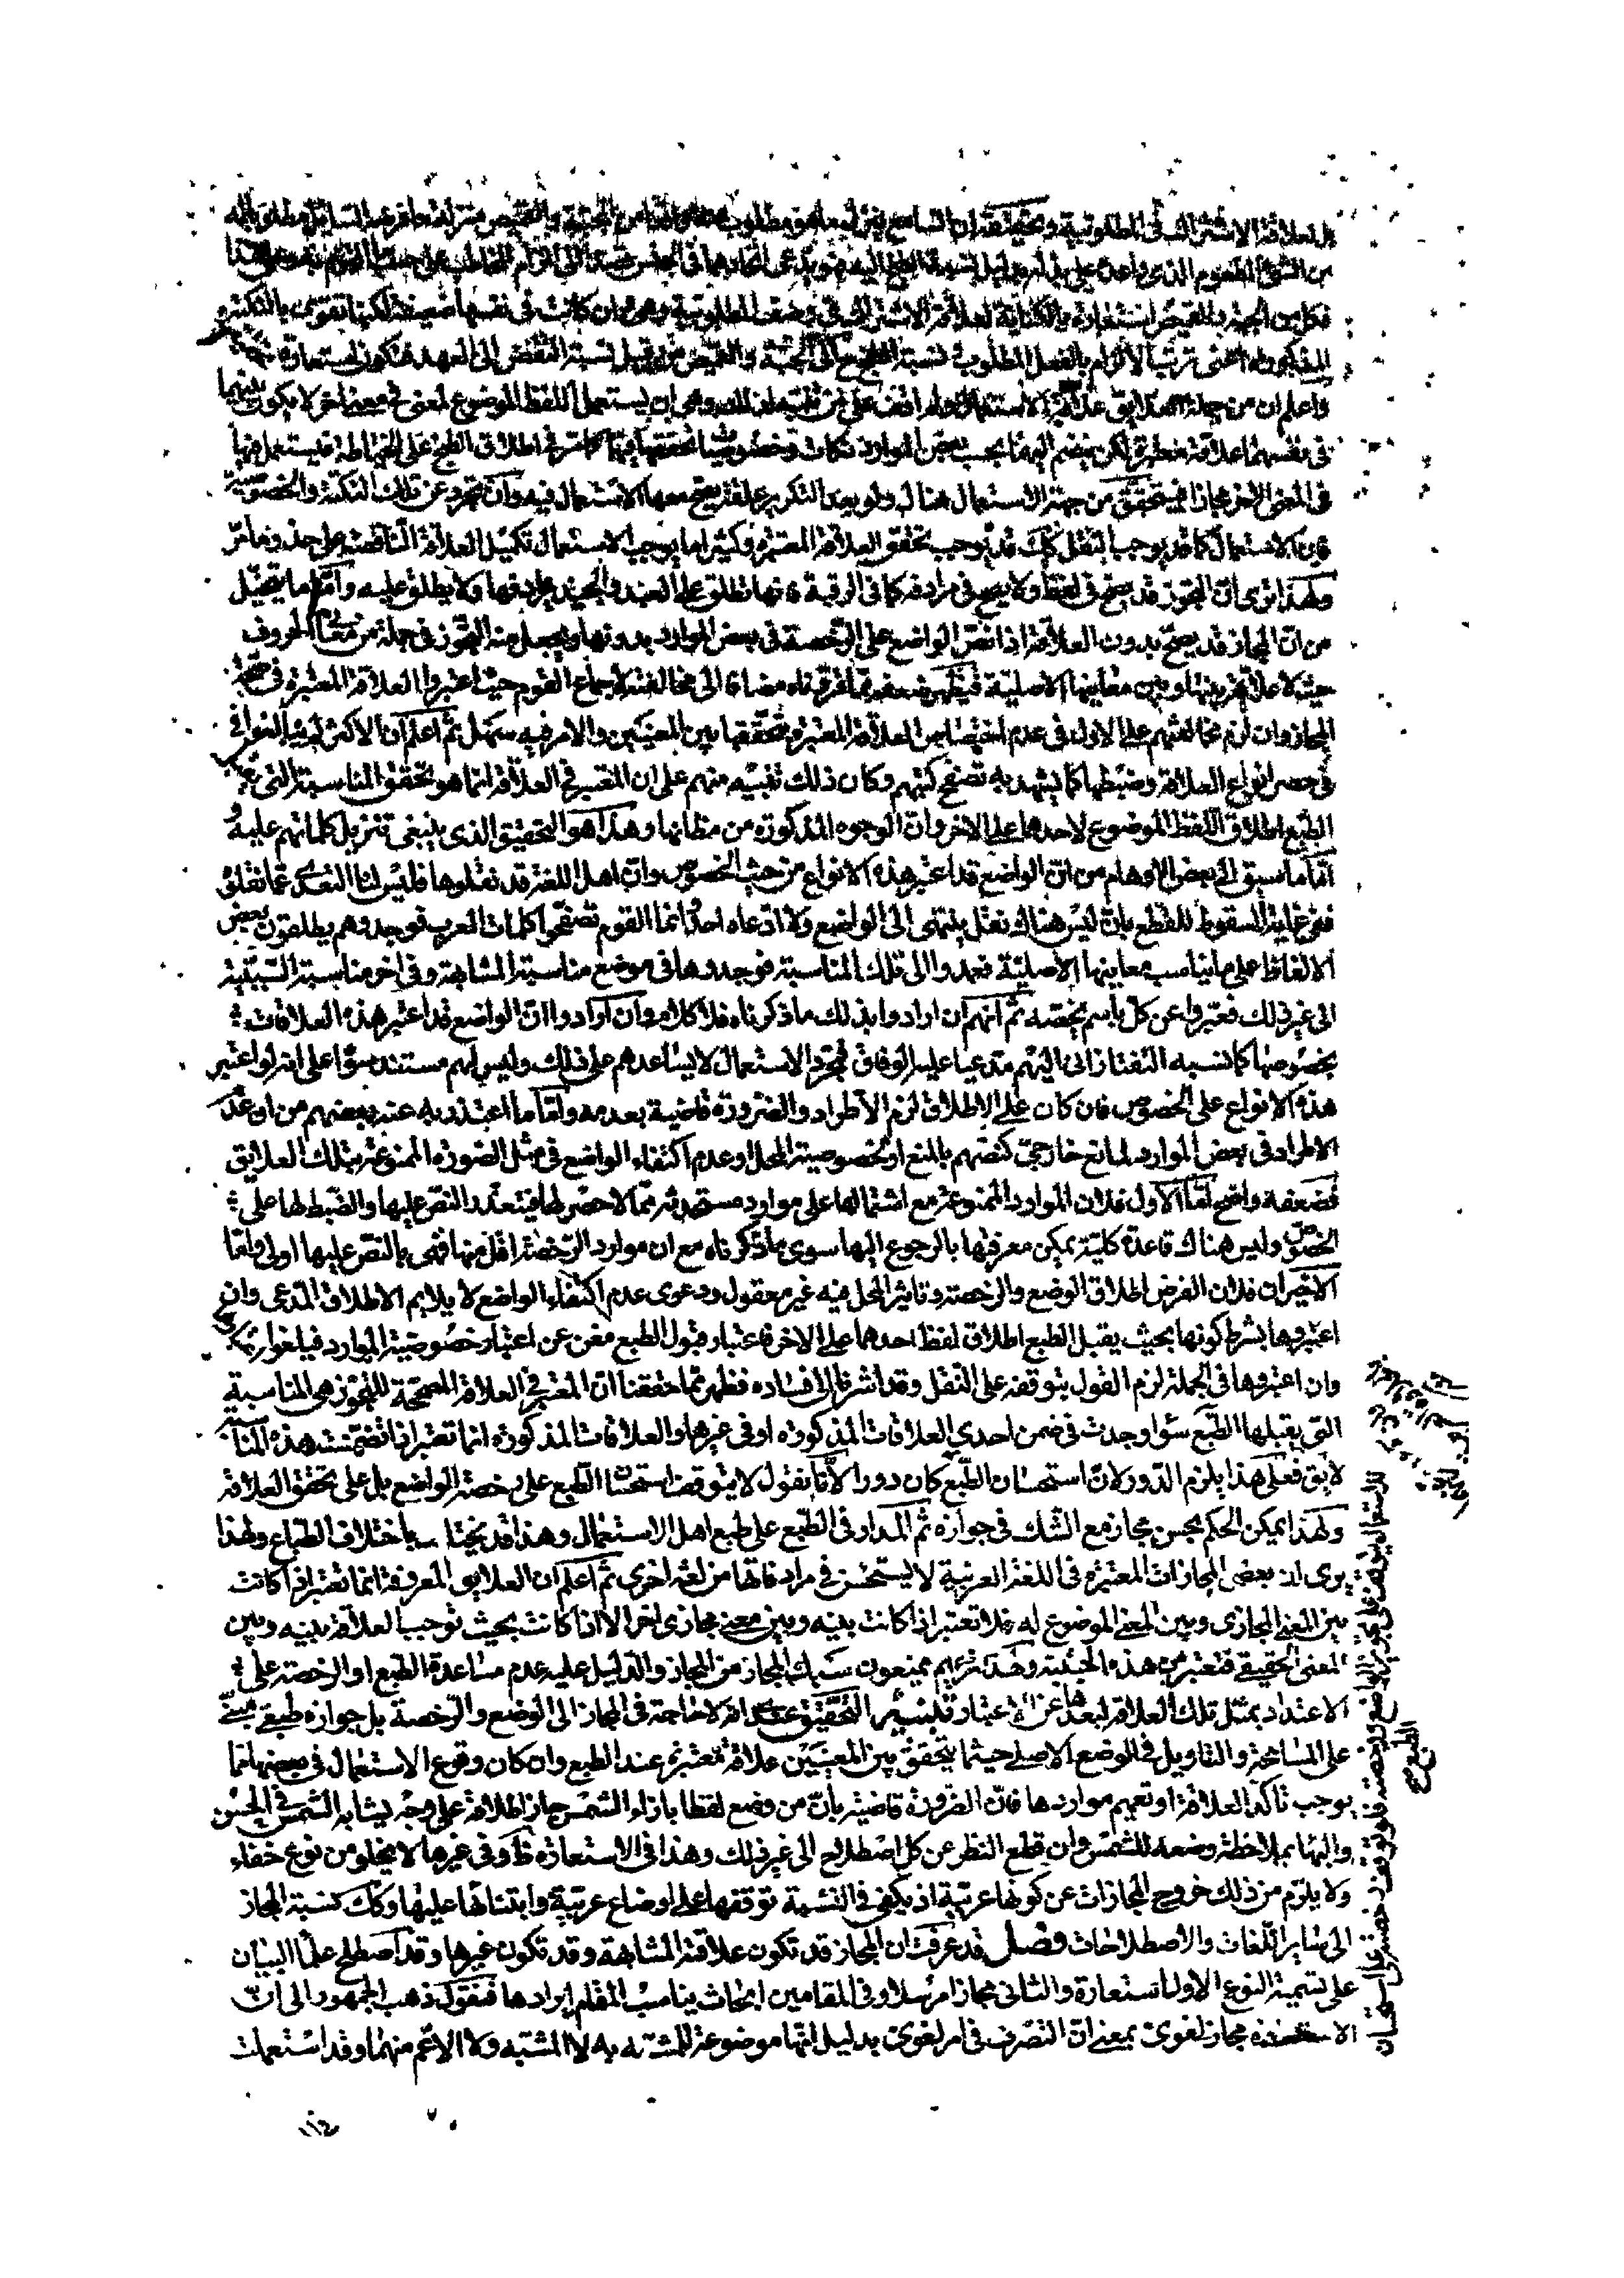 لعلاقة الاشتراك في المطلوبية
من الشئ المطعوم الذي
فكل من الجبة والقميص استعارة بالكناية لعلاقة الاشتراك في وصف المطلوبية وهي وان كانت في نفسها ضعيفة لكنها تقوت بالنكتة
المذكورة اعني ترتب الالزام بالفعل المطلوب
واعلم ان من جملة العلايق علاقة الاستعمال ولم اقف على من تنبه له وهي ان يستعمل اللفظ الموضوع لمعنى في معنى اخر لا يكون بينهما
في نفسهما علاقة معتبرة لكن ينضم اليهما بحسب بعض الموارد نكات وخصوصيات كما مر في اطلاق الطبخ على الخياطة فيستعمل فيها
في المعنى الاخر مجازا فيتحقق من جهة الاستعمال هناك ولو بعد التكرير علقة يصح معها الاستعمال فيه وان تجرد عن تلك النكتة والخصوصية
فان الاستعمال كما قد يوجب النقل كك قد يوجب تحقق العلاقة المعتبرة وكثيرا ما يوجب الاستعمال تكميل العلاقة الناقصة على حذو ما مر
ولهذا ترى ان التجوز قد يصح في لفظ ولا يصح في مرادفه كما في الرقبة فانها تطلق على العبد والجيد يرادفها ولا يطلق عليه واما ما يتخيل
من ان المجاز قد يصح بدون العلاقة اذا نص الواضع على الرخصة في بعض الموارد بدونها ويجعل منه التجوز في جملة من معاني الحروف
حيث لا علاقة بينها وبين معانيها الاصلية فيظهر ضعفه مما قررناه مضافا الى مخالفته لاجماع القوم حيث اعتبروا العلاقة المعتبرة في صحة
المجاز وان لزم مخالفتهم على الاول في عدم اختصاص العلاقة المعتبرة بتحققها بين المعنيين والامر فيه سهل ثم اعلم ان الاكثر لم يبالغوا في
في حصر انواع العلاقة وضبطها كما يشهد به تصفح كتبهم وكان ذلك تنبيه منهم على ان المعتبر في العلاقة انما هو تحقق المناسبة التي يقبل
الطبع اطلاق اللفظ الموضوع لاحدهما على الاخر وان الوجوه المذكورة من مظانها وهذا هو التحقيق الذي ينبغي تنزيل كلماتهم عليه و
اما ما سبق الى بعض الاوهام من ان الواضع قد اعتبر هذه الانواع من حيث الخصوص وان اهل اللغة قد نقلوها فليس لنا التعدي عما نقلوه
ففي غاية السقوط للقطع بان ليس هناك نقل ينتهي الى الواضع ولا ادعاه احد وانما القوم تصفحوا كلمات العرب فوجدوهم يطلقون بعض
الالفاظ على ما يناسب معانيها الاصلية فعمدوا الى تلك المناسبة فوجدوها في موضع مناسبة المشابهة وفي اخر مناسبة السببية
الى غير ذلك فعبروا عن كل باسم يخصه ثم انهم ان ارادوا بذلك ما ذكرناه فلا كلام وان ارادوا ان الواضع قد اعتبر هذه العلاقات
بخصوصها كما نسبه التفتازاني اليهم مدعيا عليه الوفاق فمجرد الاستعمال لا يساعدهم على ذلك وليس لهم مستند سواه على انه لو اعتبر
هذه الانواع على الخصوص فان كان على الاطلاق لزم الاطراد والضرورة قاضية بعدمه واما ما اعتذر به عنه بعضهم من ان عدم
الاطراد في بعض الموارد لمانع خارجي كنصهم بالمنع او لخصوصية المحل او عدم اكتفاء الواضع في مثل الصورة الممنوعة بتلك العلايق
فضعفه واضح اما الاول فلان الموارد الممنوعة مع اشتمالها على موارد مستحدثة مما لا حصر لها فيتعذر النص عليها والضبط لها على
الخصوص وليس هناك قاعدة كلية يمكن معرفتها بالرجوع اليها سوى ما ذكرناه مع ان موارد الرخصة اقل منها فهي بالنص عليها اولى واما
الاخيران فلان الفرض اطلاق الوضع والرخصة وتاثير المحل فيه غير معقول ودعوى عدم اكتفاء الواضع لا يلايم الاطلاق المدعى وان
اعتبروها بشرط كونها بحيث يقبل الطبع اطلاق لفظ احدهما على الاخر فاعتبار قبول الطبع مغن عن اعتبار خصوصية الموارد فيلغو اعتبارها
وان اعتبروها في الجملة لزم القول بتوقفه على النقل وقد اشرنا الى فساده فظهر مما حققنا ان المعتبر في العلاقة المصححة للتجوز هي المناسبة
التي يقبلها الطبع سواء وجدت في ضمن احدى العلاقات المذكورة او في غيرها والعلاقات المذكورة انما تعتبر اذا تضمنت هذه المناسبة
لا يق فعلى هذا يلزم الدور لان استحسان الطبع كان دورا لانا نقول لا يتوقف استحسان الطبع على رخصة الواضع بل على تحقق العلاقة
ولهذا يمكن الحكم بحسن مجاز مع الشك في جوازه ثم المدار في الطبع على طبع اهل الاستعمال وهذا قد يختلف باختلاف الطباع ولهذا
يرى ان بعض المجازات المعتبرة في اللغة العربية لا يستحسن في مرادفاتها من لغة اخرى ثم اعلم ان العلايق المعروفة انما تعتبر اذا كانت
بين المعنى المجازي وبين المعنى الموضوع له فلا تعتبر اذا كانت بينه وبين معنى مجازي اخر الا اذا كانت بحيث توجب العلاقة بينه وبين
المعنى الحقيقي فتعتبر من هذه الحيثية ولهذا تريهم يمنعون سبك المجاز من المجاز والدليل عليه عدم مساعدة الطبع او الرخصة على
الاعتداد بمثل تلك العلاقة لبعدها عن الاعتبار تنبيه التحقيق عندي انه لا حاجة في المجاز الى الوضع والرخصة بل جوازه طبعي مبني
على المسامحة والتاويل في الوضع الاصلي حيثما يتحقق بين المعنيين علاقة معتبرة عند الطبع وان كان وقوع الاستعمال في بعضها مما
يوجب تاكد العلاقة او تعميم مواردها فان الضرورة قاضية بان من وضع لفظا بازاء الشمس جاز اطلاقه على وجه يشابه الشمس في الحسن
والبهاء بملاحظة وضعه للشمس وان قطع النظر عن كل اصطلاح الى غير ذلك وهذا في الاستعارة ظ وفي غيرها لا يخلو من نوع خفاء
ولا يلزم من ذلك خروج المجازات عن كونها عربية اذ يكفي في النسبة توقفها على اوضاع عربية وابتنائها عليها وكك نسبة المجاز
الى ساير اللغات والاصطلاحات فصل قد عرفت ان المجاز قد تكون علاقته المشابهة وقد تكون غيرها وقد اصطلح علماء البيان
على تسمية النوع الاول استعارة والثاني مجازا مرسلا وفي المقامين ابحاث يناسب المقام ايرادها فنقول ذهب الجمهور الى ان
الاستعارة مجاز لغوي بمعنى ان التصرف في امر لغوي بدليل انها موضوعة للمشبه به لا المشبه ولا الاعم منهما وقد استعملت